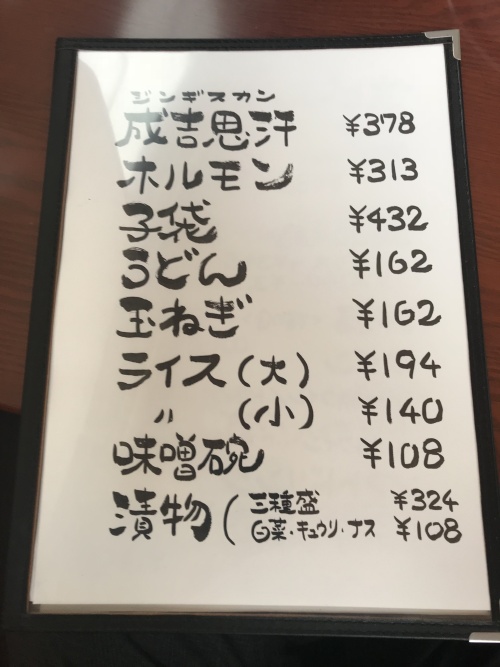 ジンギスカン
成吉思汗 ¥378
ホルモン ¥313
子袋 ¥432
うどん ¥162
玉ねぎ ¥162
ライス(大) ¥194
〃 (小) ¥140
味噌碗 ¥108
漬物( 三種盛 ¥324
白菜・キュウリ・ナス ¥108